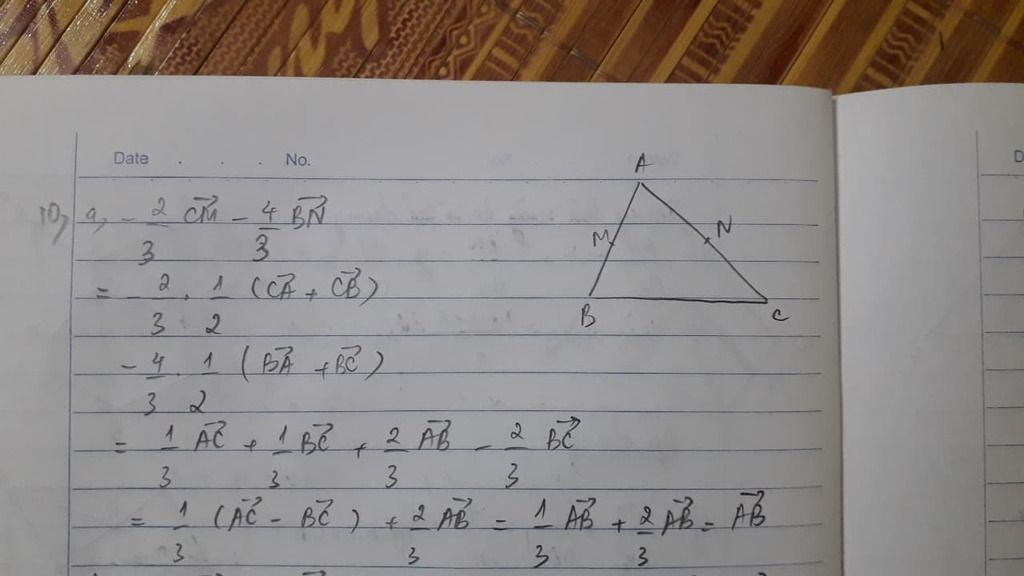 Date . . . No.
A
10, a, - 2/3 CM⃗ - 4/3 BN⃗
M N
= - 2/3 . 1/2 (CA⃗ + CB⃗)
B C
- 4/3 . 1/2 (BA⃗ + BC⃗)
= 1/3 AC⃗ + 1/3 BC⃗ + 2/3 AB⃗ - 2/3 BC⃗
= 1/3 (AC⃗ - BC⃗) + 2/3 AB⃗ = 1/3 AB⃗ + 2/3 AB⃗ = AB⃗